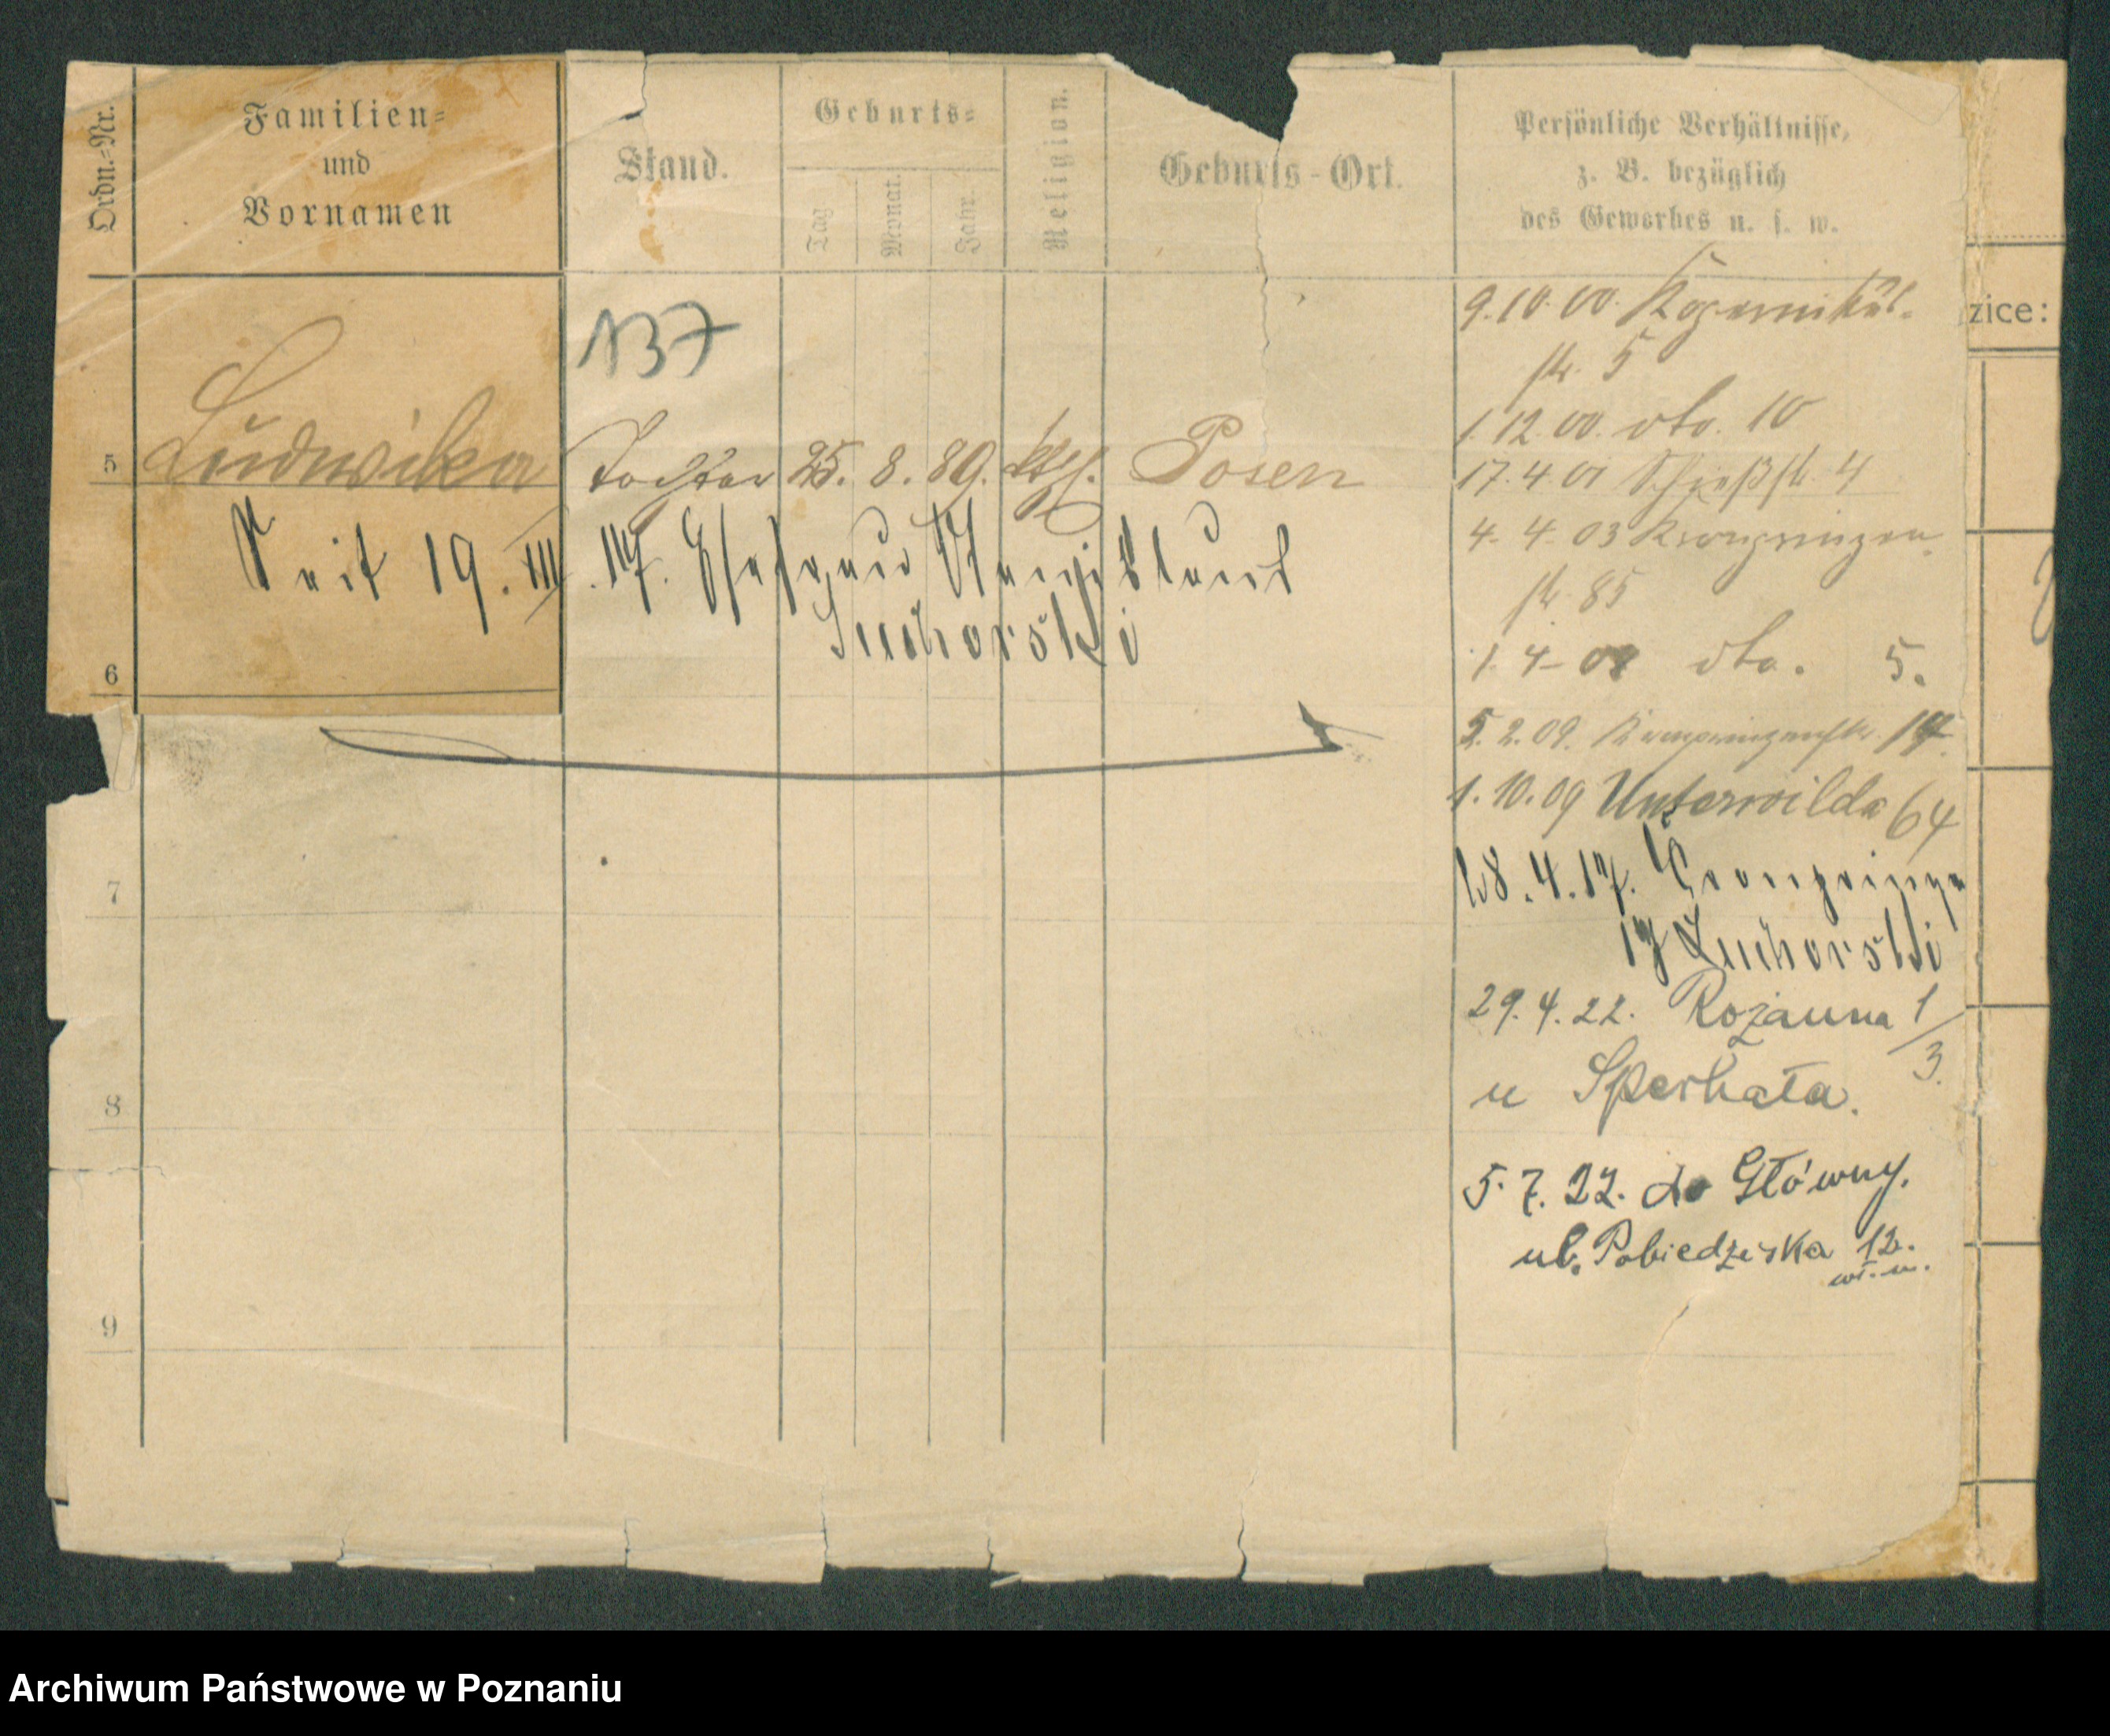 Ordn.-Nr.
Familien-
und
Vornamen
Stand.
Geburts-
Tag
Monat.
Jahr.
Religion.
Geburts-Ort.
Persönliche Verhältnisse,
z. B. bezüglich
des Gewerbes u. s. w.
137
5 Ludwika Tochter 25. 8. 89. kth. Posen
Seit 19. III. 17. Ehefrau
Suchorski
6
7
8
9
9.10.00.
str. 5
1.12.00. dto. 10
17.4.01 Schießstr. 4
4.4.03 Kronprinzen
str. 85
1.4.08 dto. 5.
5.2.09. Kronprinzenstr.
1.10.09 Unterwilda 64
18.4.17. Kronprinzen
Suchorski
29.4.22. Różanna 1/3.
u Sperkała.
5.7.22. do Główny.
ul. Pobiedziska 12.
zice:
Archiwum Państwowe w Poznaniu